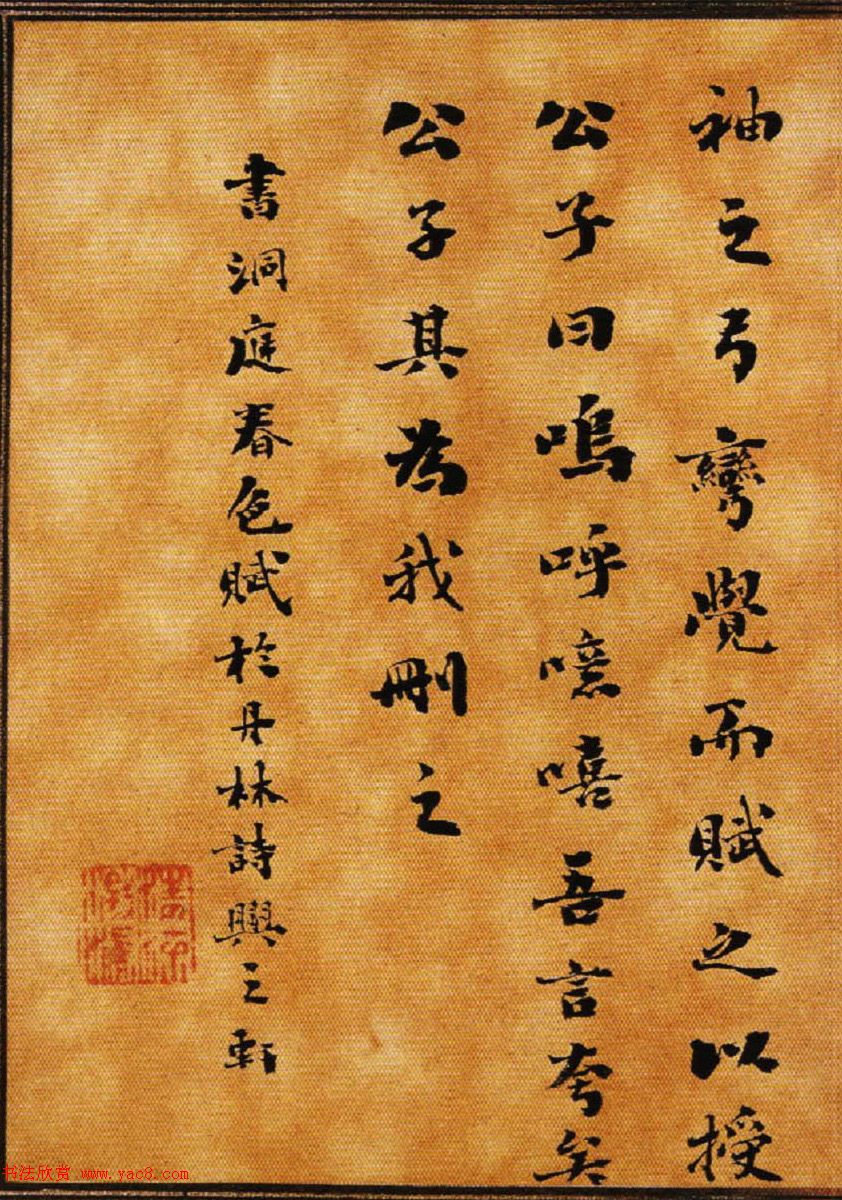 袖之弓彎覺而賦之以授
公子曰嗚呼噫嘻吾言夸矣
公子其為我刪之
書洞庭春色賦於丹林詩興之軒
书法欣赏 www.yac8.com